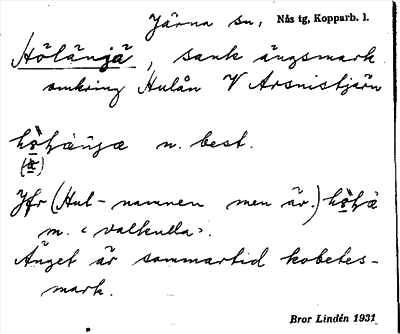 Järna sn, Nås tg, Kopparb. l.
Hölängä, sank ängsmark
omkring Hulån V Arsnistjärn
n. best.
(ä)
Jfr (Hul-namnen men är.)
m. "valkulla".
Änget är sommartid kobetes-
mark.
Bror Lindén 1931